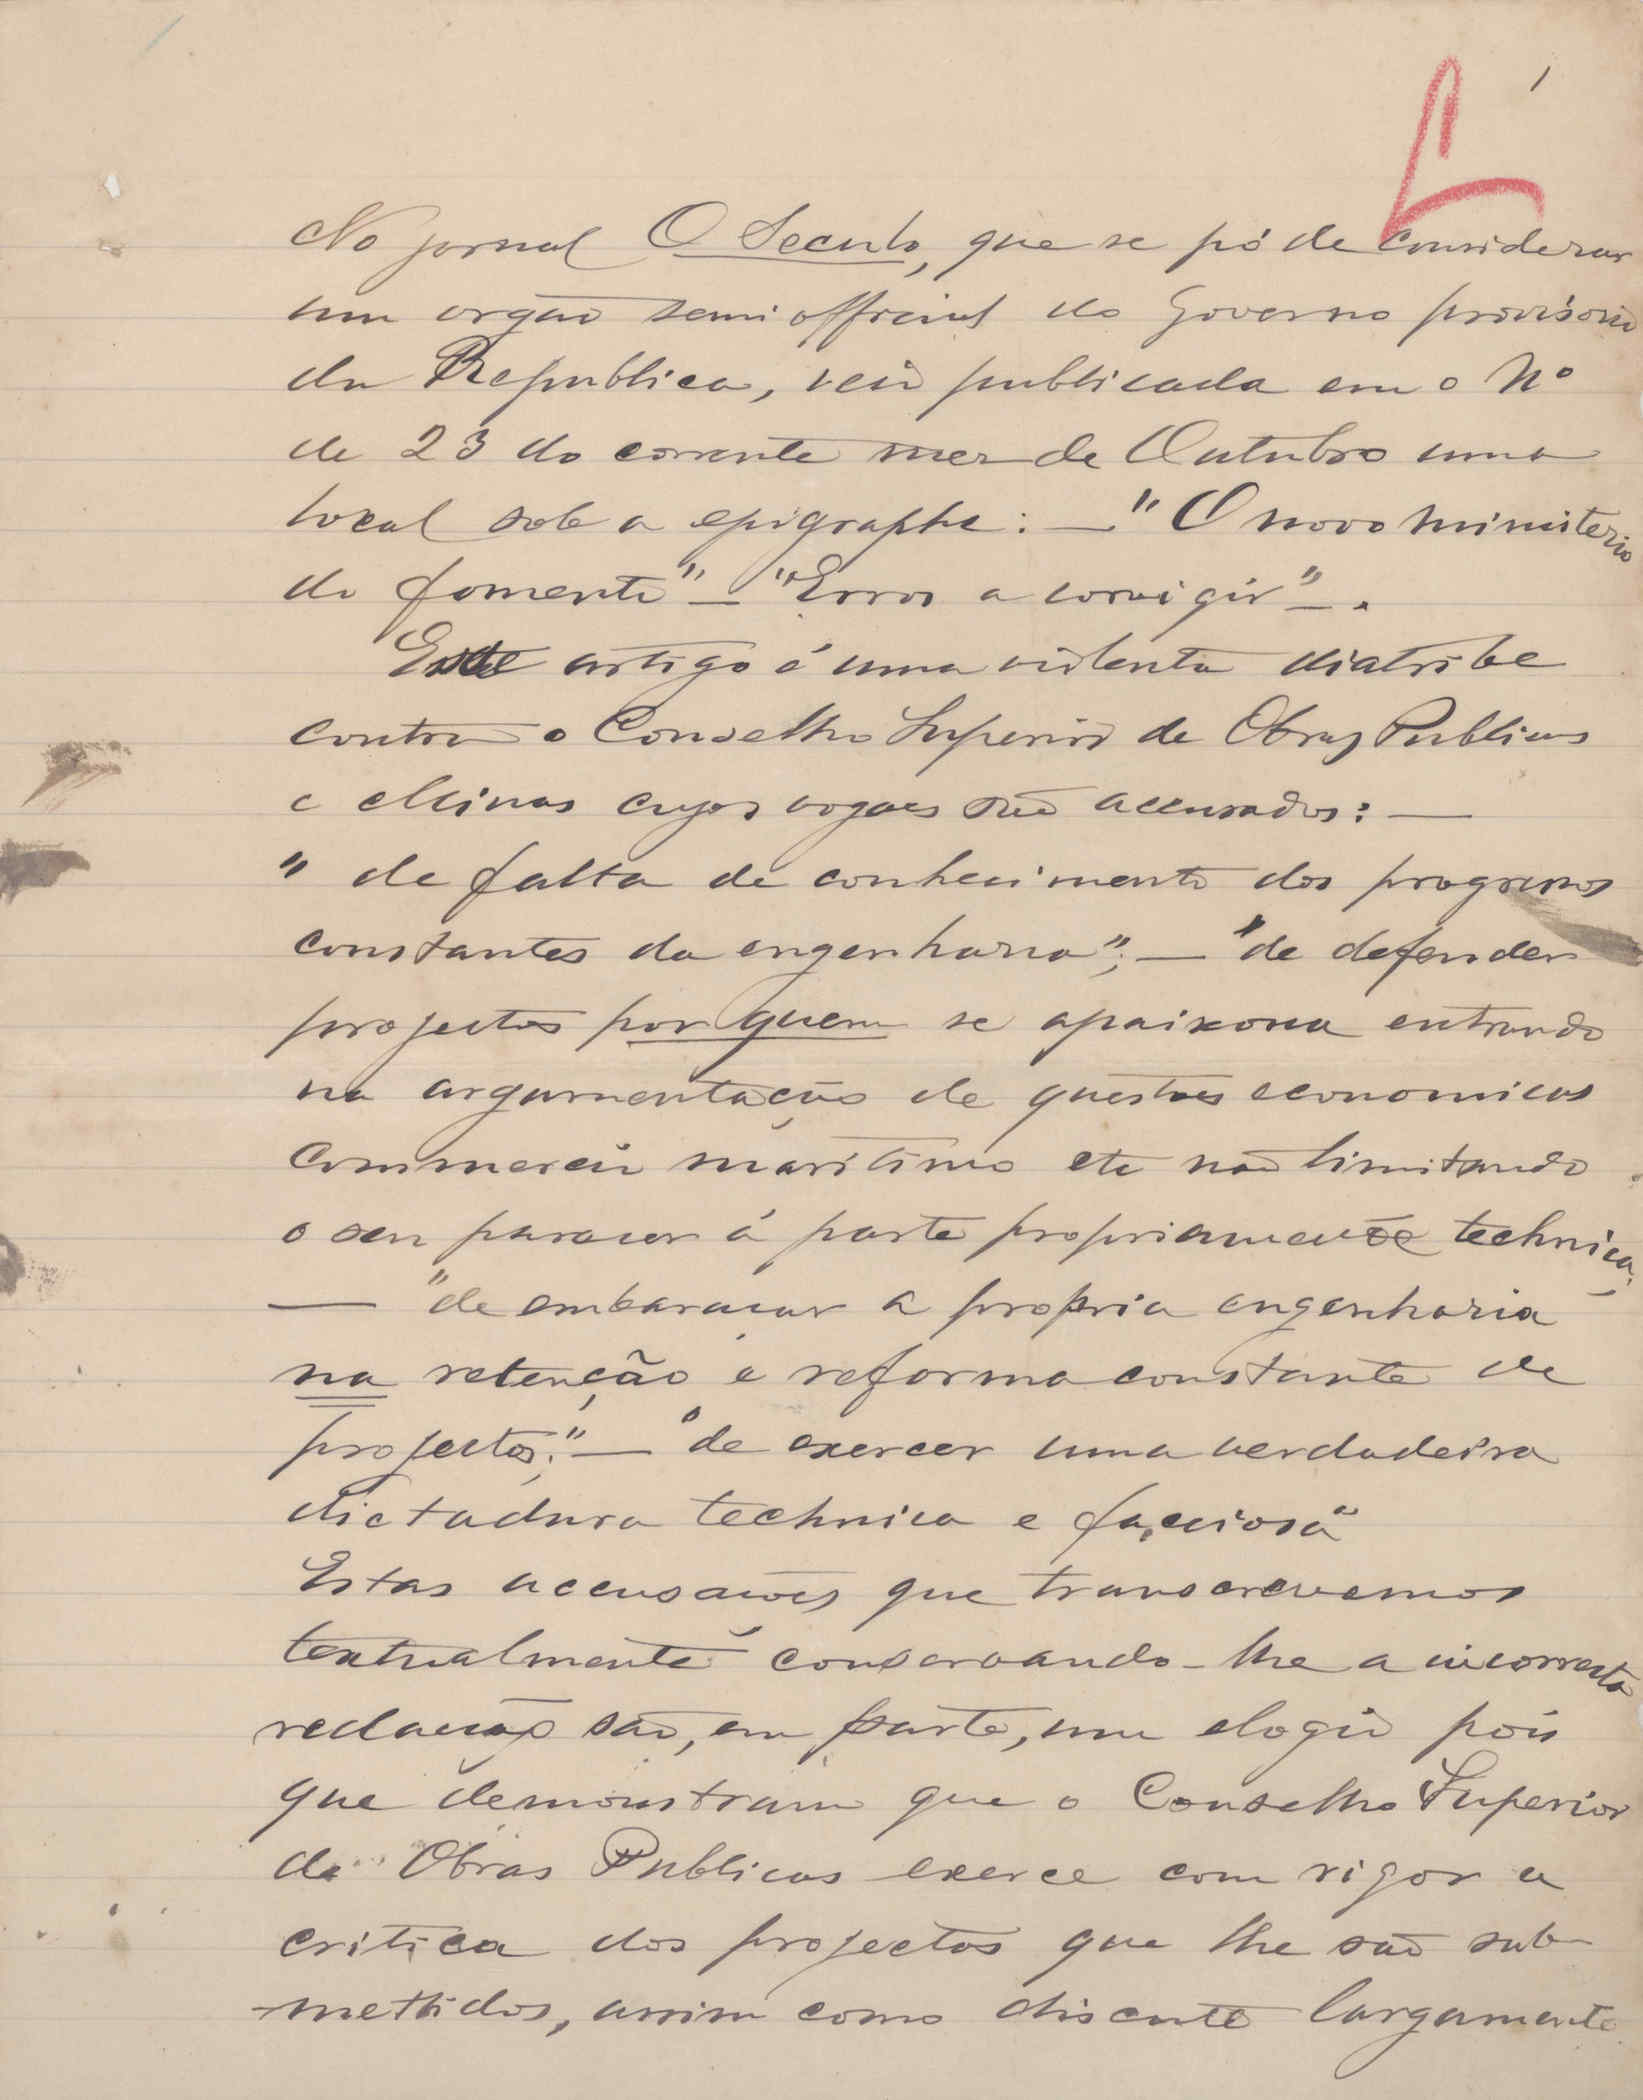 1
No jornal O Seculo, que se póde considerar
um orgão semi official do Governo provisorio
da Republica, veio publicada em o Nº
de 23 do corrente mez de Outubro uma
local sob a epigraphe: — "O novo ministerio
do fomento" — "Erros a corrigir" — .
Este artigo é uma violenta diatribe
contra o Conselho Superior de Obras Publicas
e Minas cujos vogaes são accusados: —
" de falta de conhecimento dos progressos
constantes da engenharia"; — "de defender
projectos por quem se apaixona entrando
na argumentação de questões economicas
commercio maritimo etc não limitando
o seu parecer á parte propriamente technica;
— "de embaraçar a propria engenharia
na retenção e reforma constante de
projectos;" — "de exercer uma verdadeira
dictadura technica e facciosa"
Estas accusações que transcrevemos
textualmente conservando-lhe a incorrecta
redacção são, em parte, um elogio pois
que demonstram que o Conselho Superior
de Obras Publicas exerce com rigor a
critica dos projectos que lhe são sub-
mettidos, assim como discute largamente